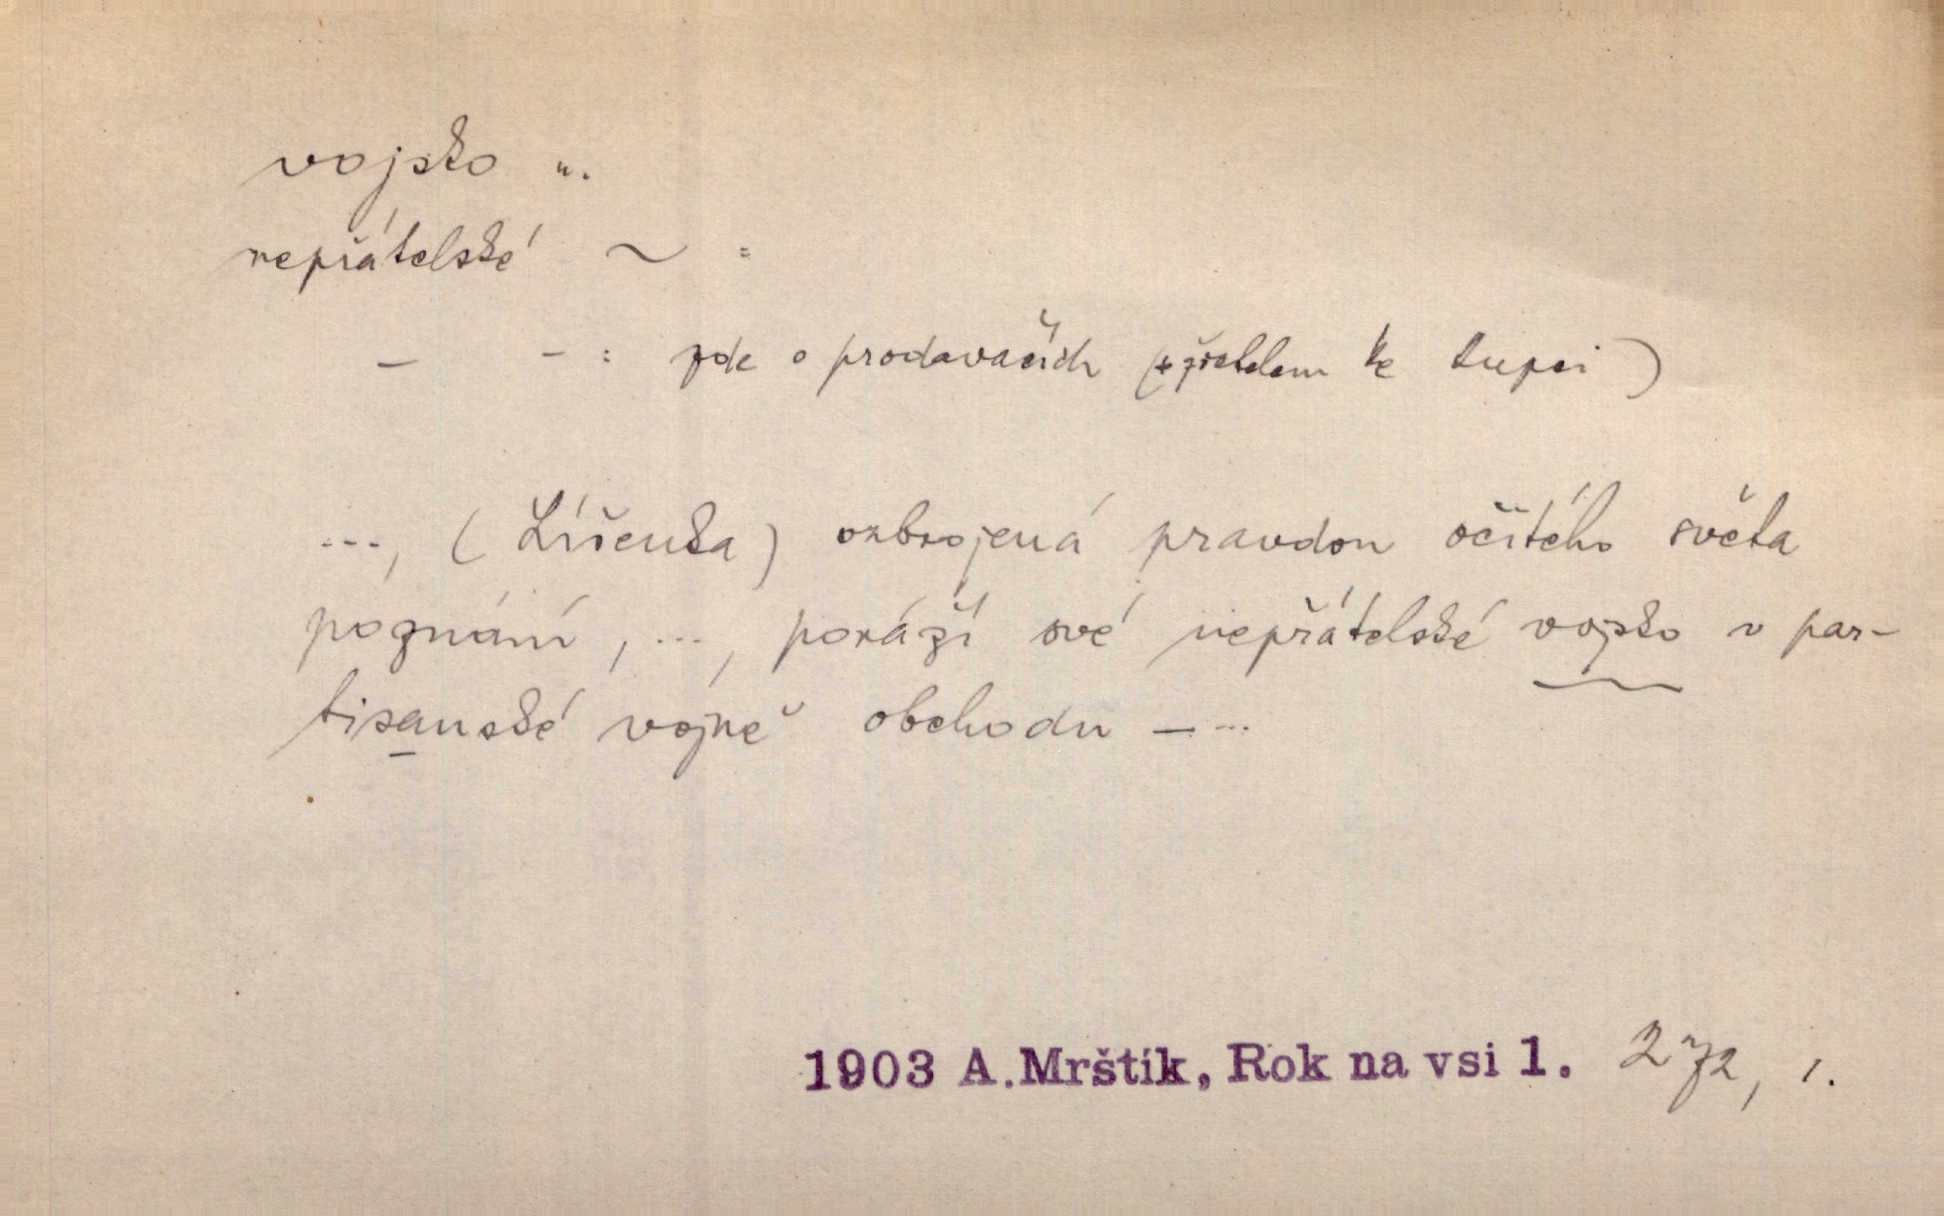 vojsko n.
nepřátelské ~ :
— - : zde o prodavačích (se zřetelem ke kupci)
..., (Líšeňka) ozbrojená pravdou očitého světa
poznání, ..., poráží své nepřátelské vojsko v par-
tisanské vojně obchodu — ...
1903 A. Mrštík, Rok na vsi 1. 272, 1.